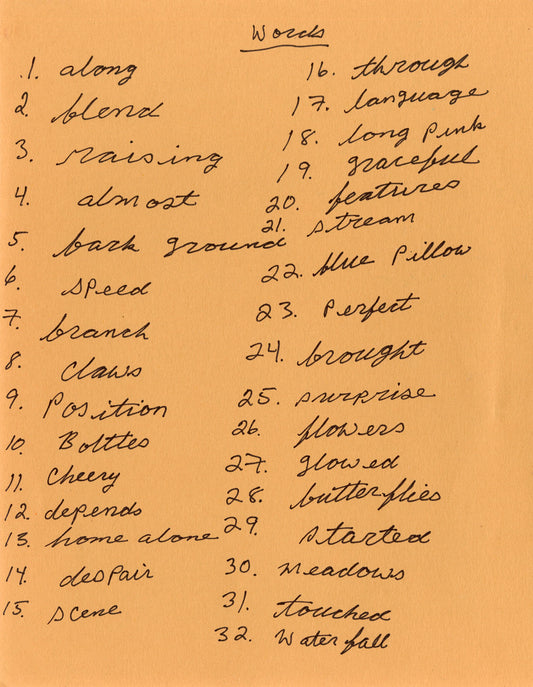 Words
1. along
2. blend
3. raising
4. almost
5. back ground
6. speed
7. branch
8. claws
9. Position
10. Bottles
11. Cheery
12. depends
13. home alone
14. despair
15. scene
16. through
17. language
18. long pink
19. graceful
20. features
21. stream
22. blue pillow
23. Perfect
24. brought
25. surprise
26. flowers
27. glowed
28. butterflies
29. started
30. meadows
31. touched
32. Waterfall